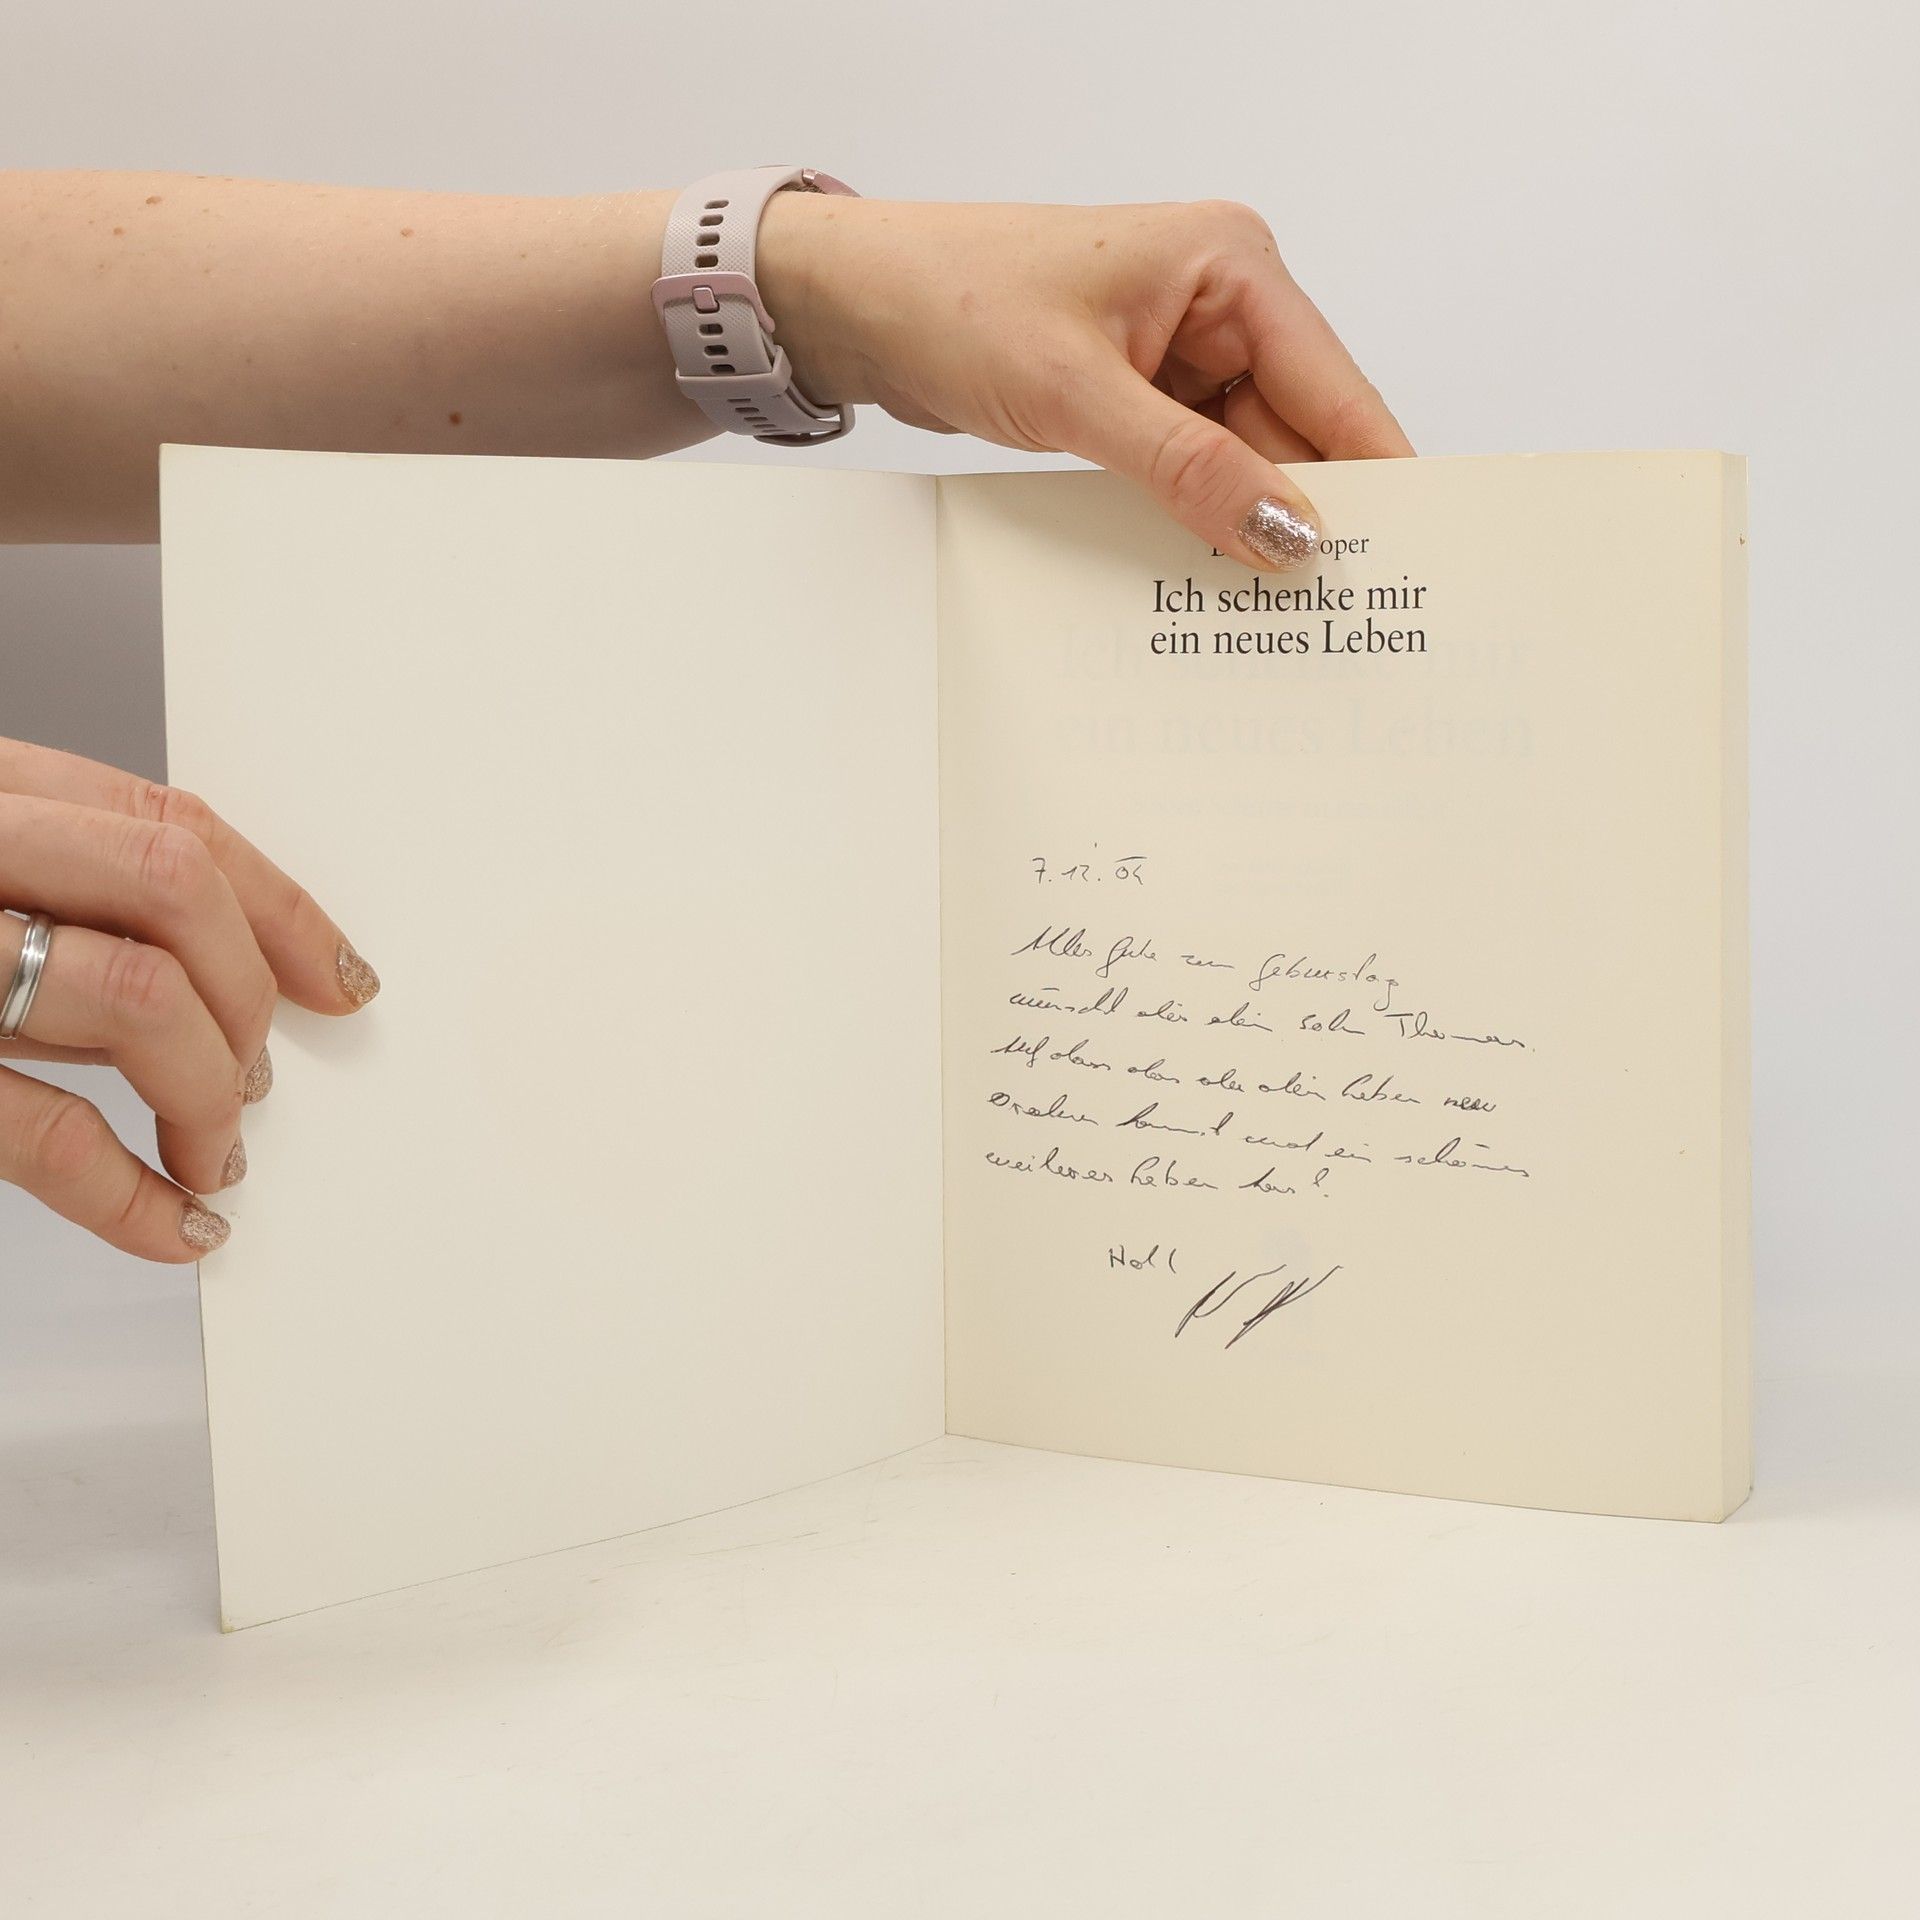 oper
Ich schenke mir
ein neues Leben
7.12.04
Alles Gute zum Geburstag
wünscht dir dein Sohn Thomas.
Auf dass das du dein Leben neu
ordnen kannst und ein schönes
weiteres Leben has!